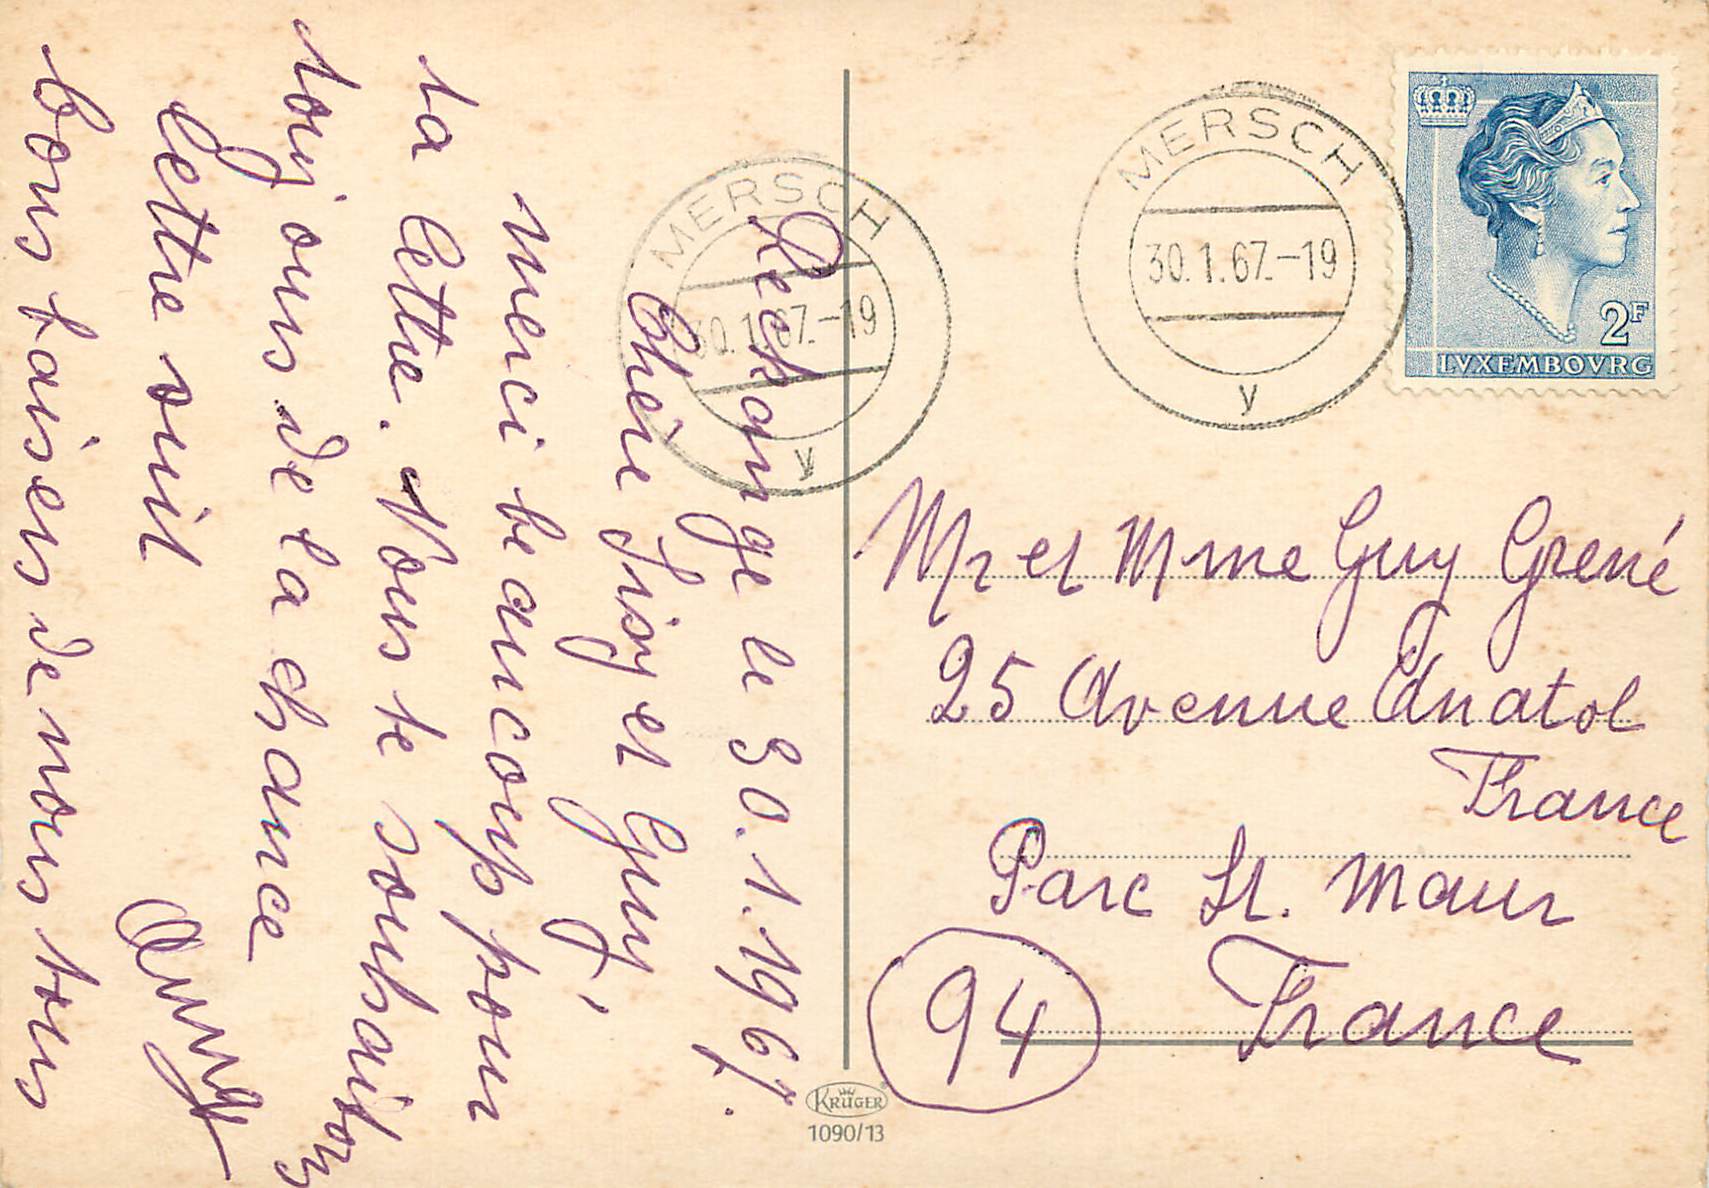 Reckange le 30.1.1967.
Chère Lisy et Guy J'
merci beaucoup pour
ta lettre. Nous te souhaitons
toujours de la chance
lettre suit
bons baisers de nous tous
MERSCH
30.1.67.-19
y
MERSCH
30.1.67.-19
y
2F
LVXEMBOVRG
Mr et Mme Guy Grené
25 Avenue Anatol
France
Parc St. Maur
94 France
KRÜGER
1090/13